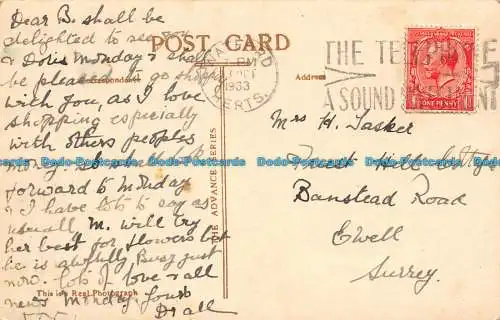 Dear B. shall be
delighted to see you
& Doris Monday & shall
be pleased to go shopping
with you, as I love
shopping especially
with others peoples
money.
forward to Monday
& I have lots to say as
usual, M. will try
her best for flowers but
is awfully Busy just
now. lots of love & all
news Monday.
all
POST CARD
Correspondence
Address
THE ADVANCE SERIES
This is a Real Photograph
PM
OCT
1933
HERTS.
THE TELEPHONE
A SOUND INVESTMENT
ONE PENNY
Mrs H. Tasker
Hill Cottage
Banstead Road
Ewell
Surrey.
Dodo-Postcards Dodo-Postcards Dodo-Postcards Dodo-Postcards Dodo-Postcards